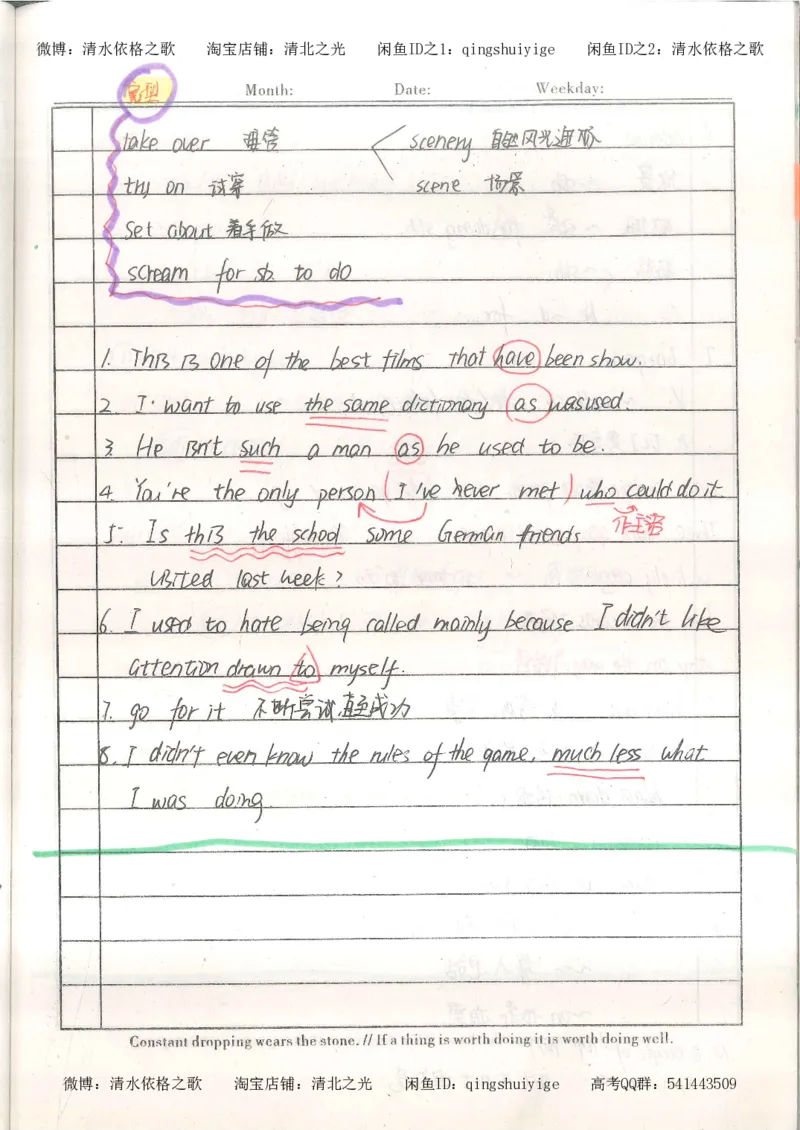 微博：清水依格之歌 淘宝店铺：清北之光 闲鱼ID之1：qingshuiyige 闲鱼ID之2：清水依格之歌
完型 Month: Date: Weekday:
take over 接管 scenery 自然风光
try on 试穿 scene 场景
set about 着手做
scream for sb. to do
1. This is one of the best films that have been show.
2. I want to use the same dictionary as was used.
3. He isn't such a man as he used to be.
4. You're the only person (I've never met) who could do it
作主语
5. Is this the school some German friends
visited last week?
6. I used to hate being called mainly because I didn't like
attention drawn to myself.
7. go for it 不断尝试,直至成功
8. I didn't even know the rules of the game, much less what
I was doing.
Constant dropping wears the stone. // If a thing is worth doing it is worth doing well.
微博：清水依格之歌 淘宝店铺：清北之光 闲鱼ID：qingshuiyige 高考QQ群：541443509